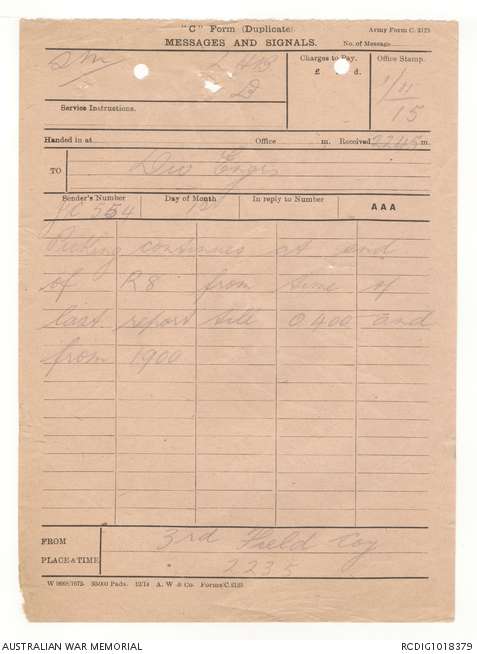 "C" Form (Duplicate).
Army Form C. 2123
MESSAGES AND SIGNALS.
No. of Message
Sm
Charges to Pay.
£ d.
Office Stamp.
1/11
15
Service Instructions.
Handed in at Office m. Received 2245 m.
TO Div Engrs
Sender's Number Day of Month In reply to Number AAA
554 1st
Picking continues at end
of R8 from time of
last report till 0400 and
from 1900
FROM 3rd Field Coy
PLACE & TIME 2235
50000 Pads. 12/14 A. W & Co. Forms/C.2123
AUSTRALIAN WAR MEMORIAL
RCDIG1018379